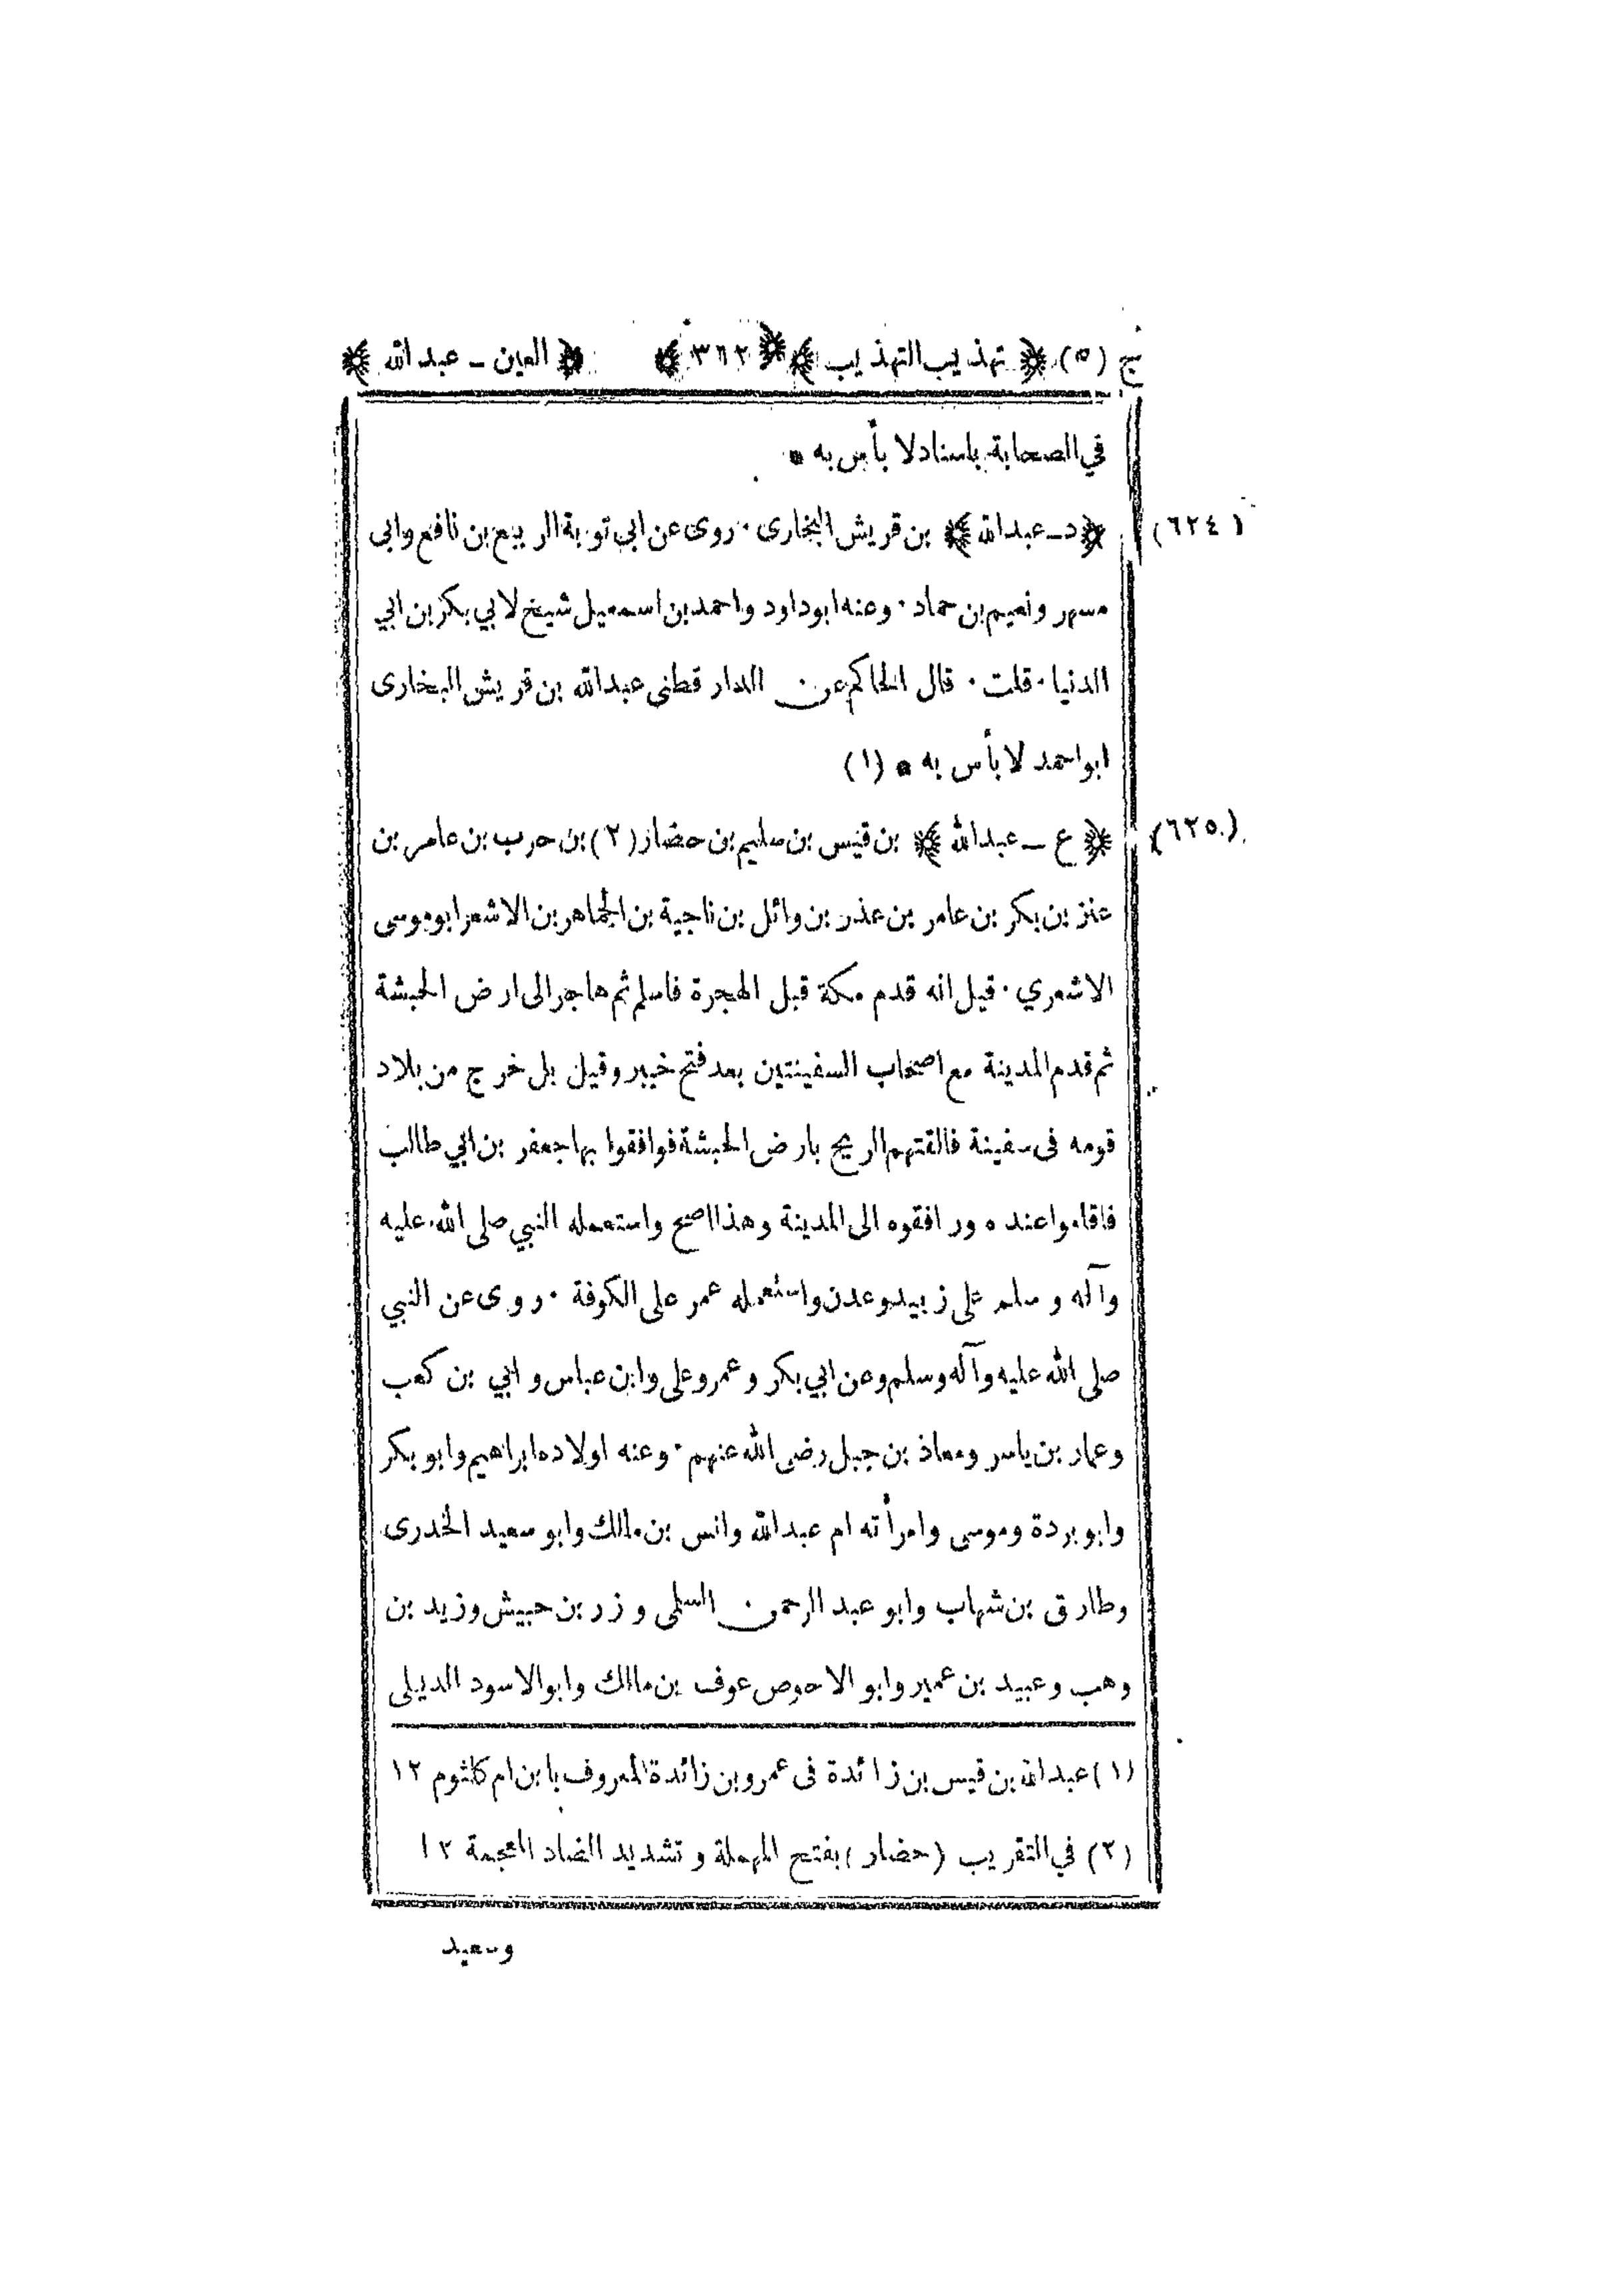 ج (٥) ﴿ تهذيب التهذيب ﴾ ﴿٣٦٢﴾ ﴿ العين ـ عبد الله ﴾
في الصحابة باسناد لا بأس به *
(٦٢٤) ﴿ د ـ عبد الله ﴾ بن قريش البخارى · روى عن ابي توبة الربيع بن نافع وابي
مسهر ونعيم بن حماد · وعنه ابو داود واحمد بن اسمعيل شيخ لابي بكر بن ابي
الدنيا · قلت · قال الحاكم عن الدار قطنى عبد الله بن قريش البخارى
ابو احمد لا بأس به * (١)
(٦٢٥) ﴿ ع ـ عبد الله ﴾ بن قيس بن سليم بن حضار (٢) بن حرب بن عامر بن
عنز بن بكر بن عامر بن عذر بن وائل بن ناجية بن الجماهر بن الاشعر ابو موسى
الاشعري · قيل انه قدم مكة قبل الهجرة فاسلم ثم هاجر الى ارض الحبشة
ثم قدم المدينة مع اصحاب السفينتين بعد فتح خيبر وقيل بل خرج من بلاد
قومه فى سفينة فالقتهم الريح بارض الحبشة فوافقوا بها جعفر بن ابي طالب
فاقاموا عنده ورافقوه الى المدينة وهذا اصح واستعمله النبي صلى الله عليه
وآله وسلم على زبيد وعدن واستعمله عمر على الكوفة · روى عن النبي
صلى الله عليه وآله وسلم وعن ابي بكر وعمر وعلى وابن عباس وابي بن كعب
وعمار بن ياسر ومعاذ بن جبل رضى الله عنهم · وعنه اولاده ابراهيم وابو بكر
وابو بردة وموسى وامرأته ام عبد الله وانس بن مالك وابو سعيد الخدرى
وطارق بن شهاب وابو عبد الرحمن السلمى وزر بن حبيش وزيد بن
وهب وعبيد بن عمير وابو الاحوص عوف بن مالك وابو الاسود الديلى
(١) عبد الله بن قيس بن زائدة فى عمرو بن زائدة المعروف بابن ام كلثوم ١٢
(٢) في التقريب (حضار) بفتح المهملة وتشديد الضاد المعجمة ١٢
وسعيد